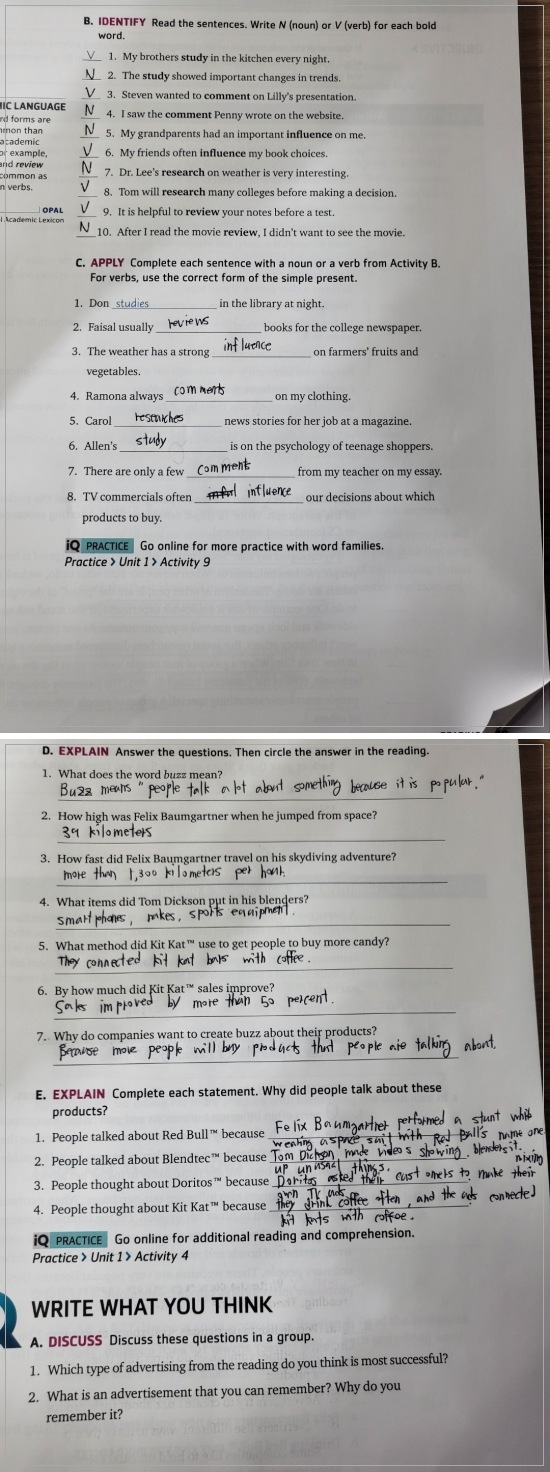 B. IDENTIFY Read the sentences. Write N (noun) or V (verb) for each bold
word.
V 1. My brothers study in the kitchen every night.
N 2. The study showed important changes in trends.
V 3. Steven wanted to comment on Lilly's presentation.
IC LANGUAGE
N 4. I saw the comment Penny wrote on the website.
rd forms are
mmon than
N 5. My grandparents had an important influence on me.
academic
or example,
V 6. My friends often influence my book choices.
and review
common as
N 7. Dr. Lee's research on weather is very interesting.
n verbs.
V 8. Tom will research many colleges before making a decision.
OPAL
l Academic Lexicon
V 9. It is helpful to review your notes before a test.
N 10. After I read the movie review, I didn't want to see the movie.
C. APPLY Complete each sentence with a noun or a verb from Activity B.
For verbs, use the correct form of the simple present.
1. Don studies in the library at night.
2. Faisal usually reviews books for the college newspaper.
3. The weather has a strong influence on farmers' fruits and
vegetables.
4. Ramona always comments on my clothing.
5. Carol researches news stories for her job at a magazine.
6. Allen's study is on the psychology of teenage shoppers.
7. There are only a few comments from my teacher on my essay.
8. TV commercials often influence our decisions about which
products to buy.
iQ PRACTICE Go online for more practice with word families.
Practice > Unit 1 > Activity 9
D. EXPLAIN Answer the questions. Then circle the answer in the reading.
1. What does the word buzz mean?
Buzz means "people talk a lot about something because it is popular."
2. How high was Felix Baumgartner when he jumped from space?
39 kilometers
3. How fast did Felix Baumgartner travel on his skydiving adventure?
more than 1,300 kilometers per hour.
4. What items did Tom Dickson put in his blenders?
smart phones, rakes, sports equipment.
5. What method did Kit Kat™ use to get people to buy more candy?
They connected kit kat bars with coffee.
6. By how much did Kit Kat™ sales improve?
Sales improved by more than 50 percent.
7. Why do companies want to create buzz about their products?
Because more people will buy products that people are talking about.
E. EXPLAIN Complete each statement. Why did people talk about these
products?
1. People talked about Red Bull™ because Felix Baumgartner performed a stunt while
wearing a space suit with Red Bull's name one it.
2. People talked about Blendtec™ because Tom Dickson made videos showing blenders mixing
up unusual things.
3. People thought about Doritos™ because Doritos asked their customers to make their
own TV ads.
4. People thought about Kit Kat™ because they drink coffee often, and the ads connected
kit kats with coffee.
iQ PRACTICE Go online for additional reading and comprehension.
Practice > Unit 1 > Activity 4
WRITE WHAT YOU THINK
A. DISCUSS Discuss these questions in a group.
1. Which type of advertising from the reading do you think is most successful?
2. What is an advertisement that you can remember? Why do you
remember it?